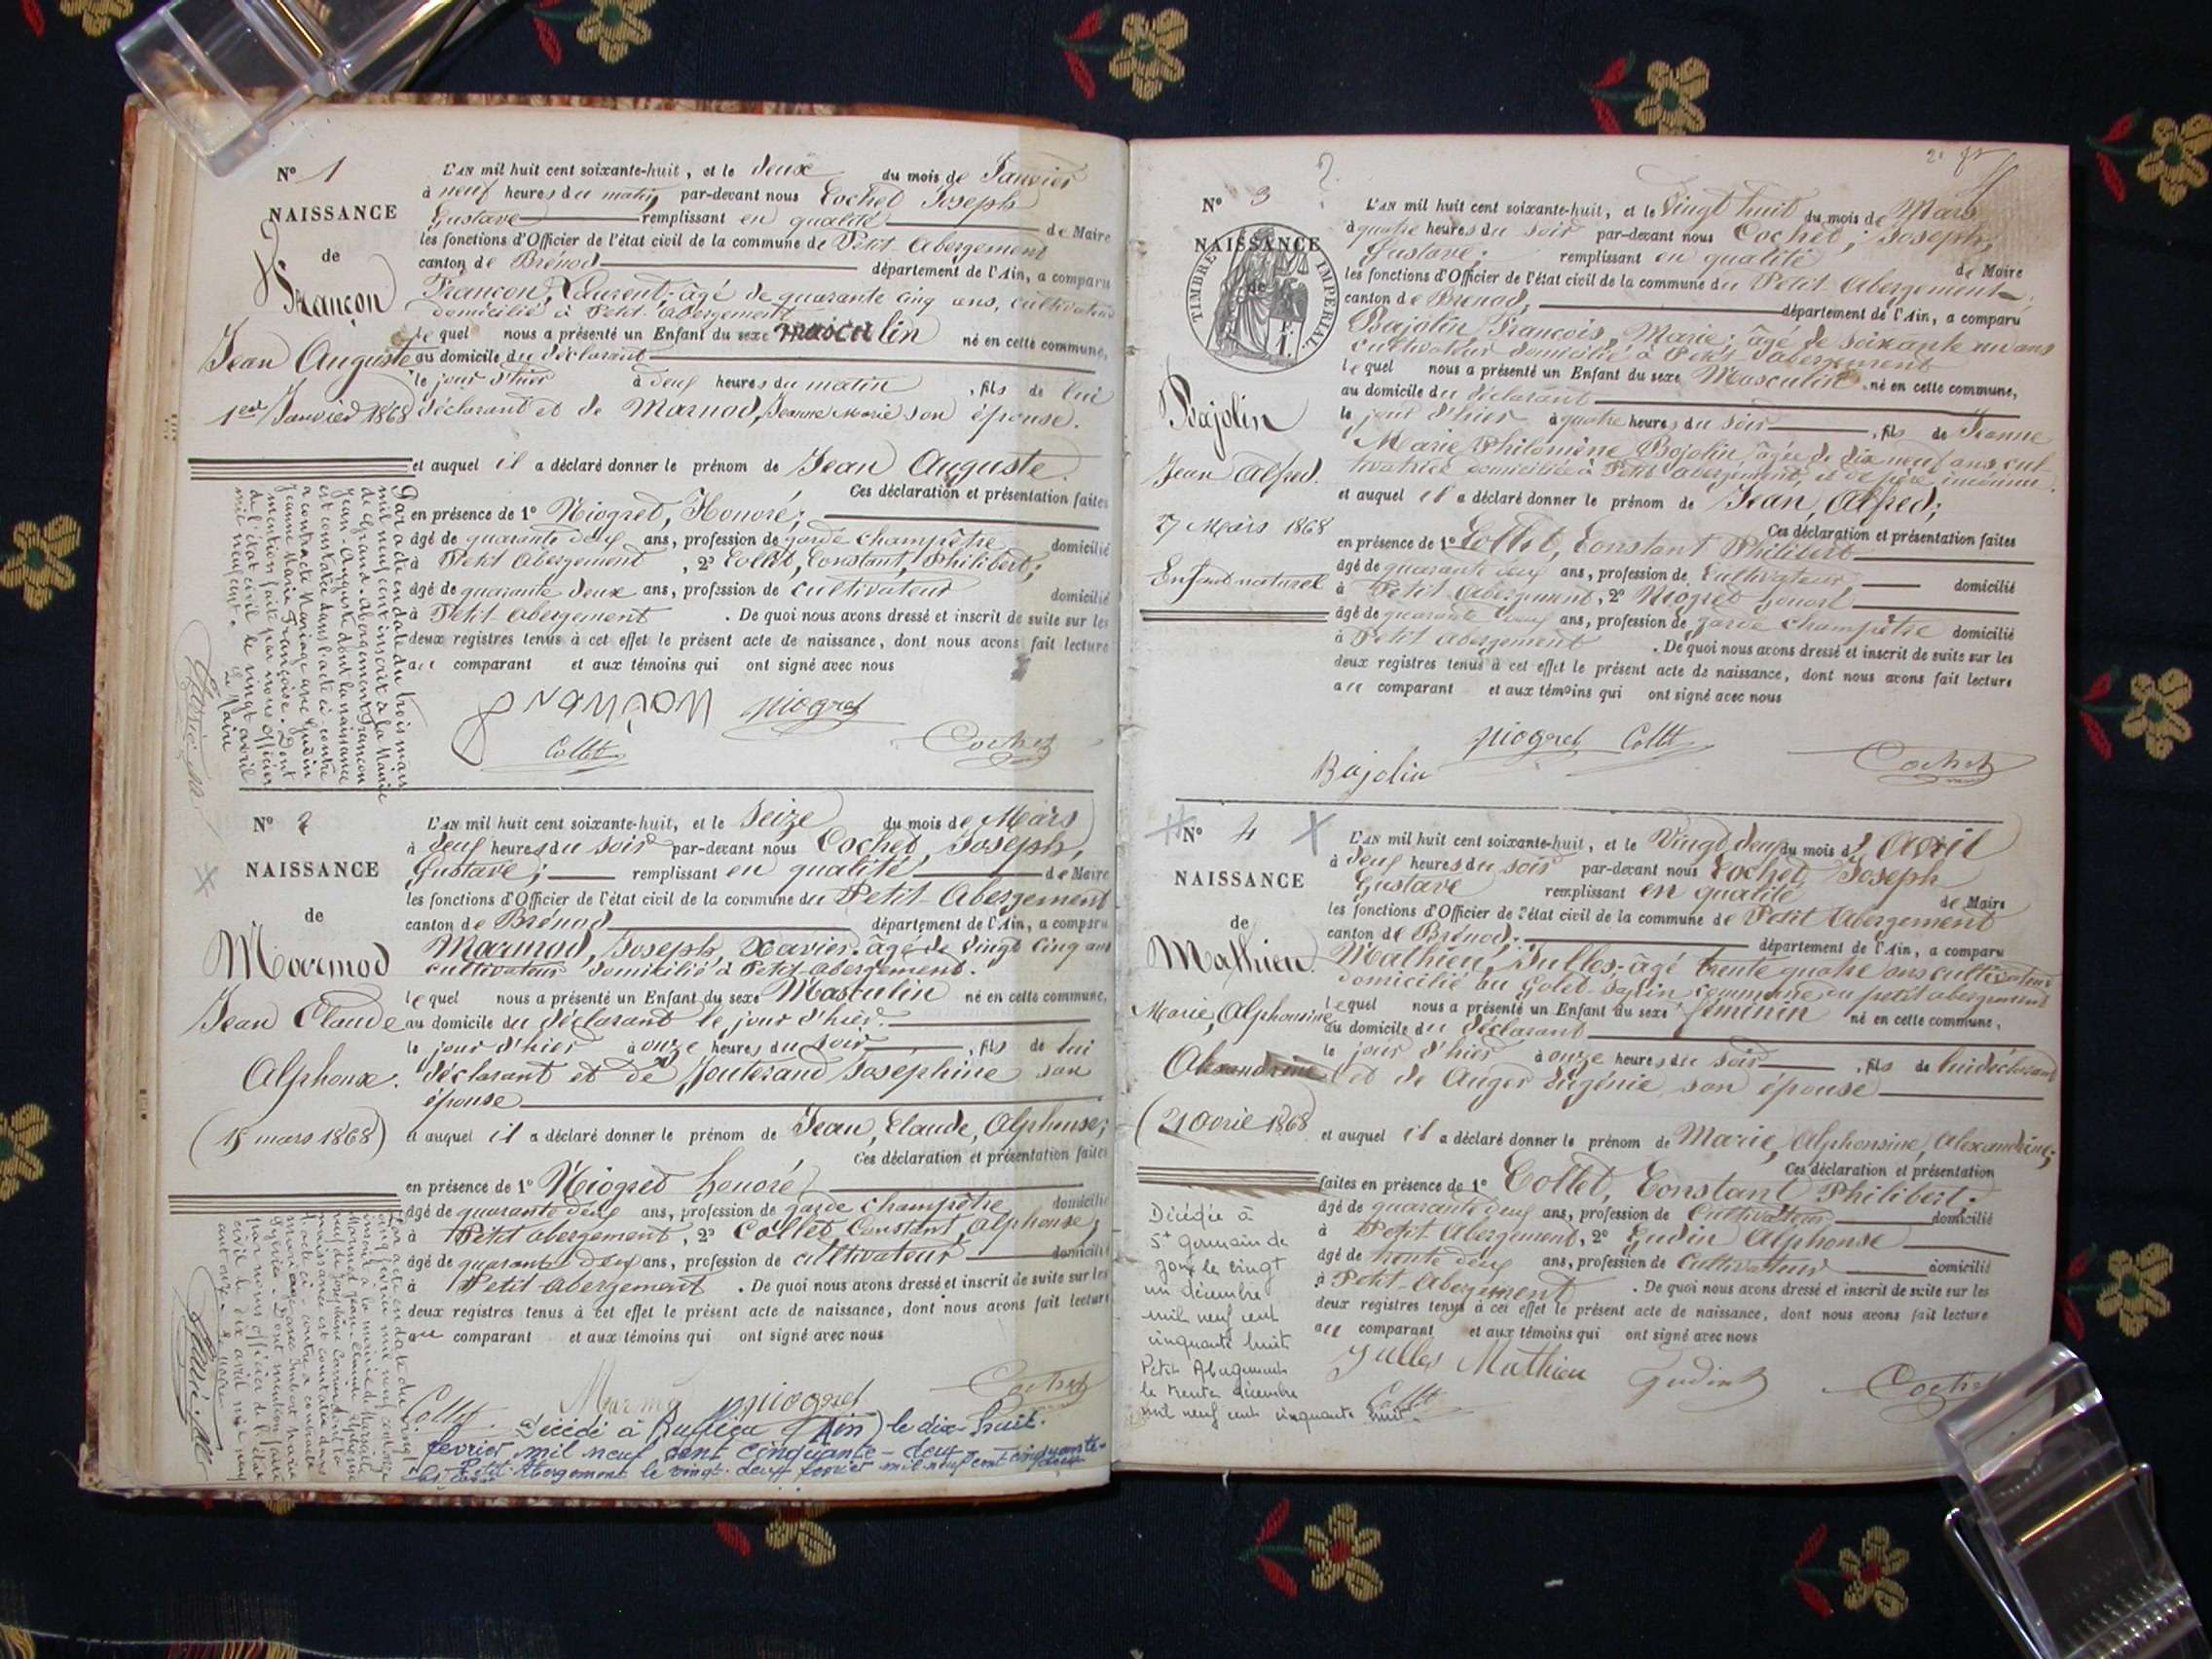 N° 1
NAISSANCE
de
Françon
Jean Auguste
1er Janvier 1868
L'AN mil huit cent soixante-huit, et le deux du mois de Janvier
à neuf heures du matin, par-devant nous Cochet Joseph
Gustave remplissant en qualité de Maire
les fonctions d'Officier de l'état civil de la commune de Petit-Abergement
canton de Brénod département de l'Ain, a comparu
Françon, Laurent, âgé de quarante cinq ans, cultivateur
domicilié à Petit-Abergement
lequel nous a présenté un Enfant du sexe masculin né en cette commune,
au domicile du déclarant
le jour d'hier à deux heures du matin, fils de lui
déclarant et de Marnod, Jeanne Marie son épouse.
et auquel il a déclaré donner le prénom de Jean Auguste
Ces déclaration et présentation faites
en présence de 1° Niogret, Honoré;
âgé de quarante deux ans, profession de garde champêtre domicilié
à Petit Abergement, 2° Collet, Constant, Philibert;
âgé de quarante deux ans, profession de cultivateur domicilié
à Petit-Abergement. De quoi nous avons dressé et inscrit de suite sur les
deux registres tenus à cet effet le présent acte de naissance, dont nous avons fait lecture
au comparant et aux témoins qui ont signé avec nous
Par acte en date du trois mars
mil neuf cent inscrit à la Mairie
de Grand-Abergement Françon
Jean-Auguste dont la naissance
est constatée dans l'acte ci-contre
a contracté Mariage avec Gudin
Jeanne Marie Françoise. Dont
mention faite par nous officier
de l'état civil le vingt avril
mil neuf cent.
Le Maire
Françon Niogret
Collet Cochet
N° 2
NAISSANCE
de
Marmod
Jean Claude
Alphonse.
(15 mars 1868)
L'AN mil huit cent soixante-huit, et le Seize du mois de Mars
à deux heures du soir par-devant nous Cochet, Joseph,
Gustave; remplissant en qualité de Maire
les fonctions d'Officier de l'état civil de la commune du Petit-Abergement
canton de Brénod département de l'Ain, a comparu
Marmod, Joseph, Xavier. âgé de vingt cinq ans
cultivateur domicilié à Petit-Abergement.
lequel nous a présenté un Enfant du sexe Masculin né en cette commune,
au domicile du déclarant le jour d'hier.
le jour d'hier à onze heures du soir, fils de lui
déclarant et de Jouterand Joséphine son
épouse
et auquel il a déclaré donner le prénom de Jean, Claude, Alphonse;
Ces déclaration et présentation faites
en présence de 1° Niogret honoré
âgé de quarante deux ans, profession de garde champêtre domicilié
à Petit Abergement, 2° Collet Constant, Alphonse;
âgé de quarante deux ans, profession de cultivateur domicilié
à Petit Abergement. De quoi nous avons dressé et inscrit de suite sur les
deux registres tenus à cet effet le présent acte de naissance, dont nous avons fait lecture
au comparant et aux témoins qui ont signé avec nous
Collet Marmod Niogret Cochet
Décédé à Ruffieu (Ain) le dix-huit
février mil neuf cent cinquante-deux
Petit Abergement le vingt-deux février mil neuf cent cinquante-deux
2
N° 3
NAISSANCE
de
TIMBRE IMPERIAL
Bajolin
Jean Alfred.
27 Mars 1868
Enfant naturel
L'AN mil huit cent soixante-huit, et le Vingt huit du mois de Mars
à quatre heures du soir par-devant nous Cochet, Joseph,
Gustave; remplissant en qualité de Maire
les fonctions d'Officier de l'état civil de la commune du Petit Abergement
canton de Brénod, département de l'Ain, a comparu
Bajolin, François, Marie, âgé de soixante un ans
cultivateur domicilié à Petit Abergement
lequel nous a présenté un Enfant du sexe Masculin né en cette commune,
au domicile du déclarant
le jour d'hier à quatre heures du soir, fils de Jeanne
Marie Philomène Bajolin, âgée de dix neuf ans, cul-
tivatrice domiciliée à Petit Abergement, et de père inconnu.
et auquel il a déclaré donner le prénom de Jean, Alfred;
Ces déclaration et présentation faites
en présence de 1° Collet, Constant Philibert
âgé de quarante deux ans, profession de Cultivateur domicilié
à Petit Abergement, 2° Niogret honoré
âgé de quarante deux ans, profession de garde champêtre domicilié
à Petit Abergement. De quoi nous avons dressé et inscrit de suite sur les
deux registres tenus à cet effet le présent acte de naissance, dont nous avons fait lecture
au comparant et aux témoins qui ont signé avec nous
Niogret Collet
Bajolin Cochet
N° 4
NAISSANCE
de
Mathieu
Marie, Alphonsine
Alexandrine
(21 avril 1868
L'AN mil huit cent soixante-huit, et le Vingt deux du mois d'Avril
à deux heures du soir par-devant nous Cochet, Joseph
Gustave remplissant en qualité de Maire
les fonctions d'Officier de l'état civil de la commune de Petit Abergement
canton de Brénod; département de l'Ain, a comparu
Mathieu, Julles, âgé trente quatre ans cultivateur
domicilié au Golet Baplin commune du petit abergement
lequel nous a présenté un Enfant du sexe féminin né en cette commune,
au domicile du déclarant
le jour d'hier à onze heures du soir, fils de lui déclarant
et de Auger Eugénie son épouse
et auquel il a déclaré donner le prénom de Marie, Alphonsine, Alexandrine;
Ces déclaration et présentation
faites en présence de 1° Collet, Constant Philibert.
âgé de quarante deux ans, profession de Cultivateur domicilié
à Petit Abergement, 2° Gudin Alphonse
âgé de trente deux ans, profession de Cultivateur domicilié
à Petit-Abergement. De quoi nous avons dressé et inscrit de suite sur les
deux registres tenus à cet effet le présent acte de naissance, dont nous avons fait lecture
au comparant et aux témoins qui ont signé avec nous
Julles Mathieu Gudin
Collet Cochet
Décédée à
St Germain de
Joux le vingt
un décembre
mil neuf cent
cinquante huit
Petit Abergement
le trente décembre
mil neuf cent cinquante huit.